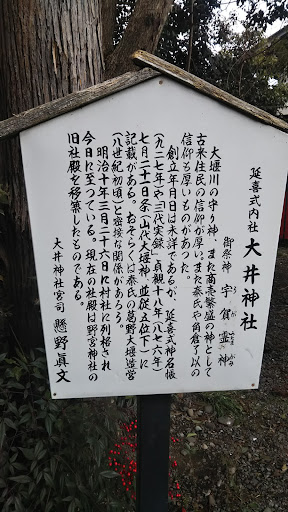 延喜式内社 大井神社
御祭神 宇賀霊神
うがたまのかみ
大堰川の守り神、また商売繁盛の神として
古来住民の信仰が厚い。また秦氏や角倉了以の
信仰も厚いものがあった。
創立年月日は未詳であるが、延喜式神名帳
(九二七年)や『三代実録』貞観十八年(八七六年)
七月二十一日条(山代大堰神、並従五位下)に
記載がある。おそらくは秦氏の葛野大堰造営
(八世紀初頃)と密接な関係があろう。
明治十年三月二十六日に村社に列格され
今日に至っている。現在の社殿は野宮神社の
旧社殿を移築したものである。
大井神社宮司 懸野眞文